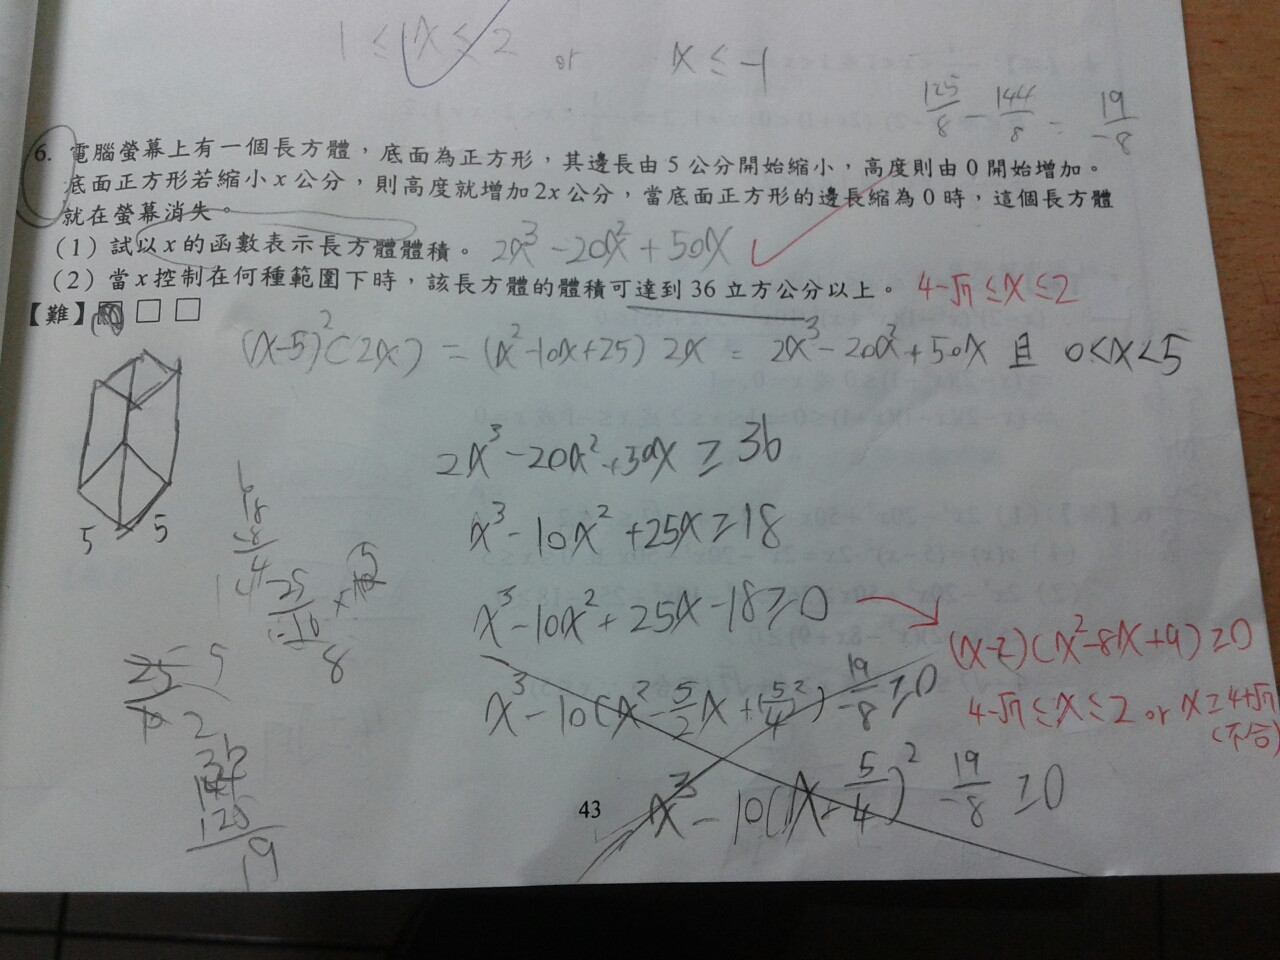 1 ≤ x ≤ 2 or x ≤ -1
125/8 - 144/8 = 19/-8
6. 電腦螢幕上有一個長方體，底面為正方形，其邊長由5公分開始縮小，高度則由0開始增加。
底面正方形若縮小x公分，則高度就增加2x公分，當底面正方形的邊長縮為0時，這個長方體
就在螢幕消失。
(1) 試以x的函數表示長方體體積。 2x³-20x²+50x
(2) 當x控制在何種範圍下時，該長方體的體積可達到36立方公分以上。 4-√7 ≤ x ≤ 2
【難】
(x-5)²(2x) = (x²-10x+25) 2x = 2x³-20x²+50x 且 0<x<5
2x³-20x²+50x ≥ 36
x³-10x²+25x ≥ 18
x³-10x²+25x-18 ≥ 0
(x-2)(x²-8x+9) ≥ 0
x³-10(x²-5/2x+(5/4)²) 19/-8 ≥ 0
4-√7 ≤ x ≤ 2 or x ≥ 4+√7
(不合)
x³-10(x-5/4)² 19/-8 ≥ 0
5 5
25
8
5
2
36
144
125
19
43